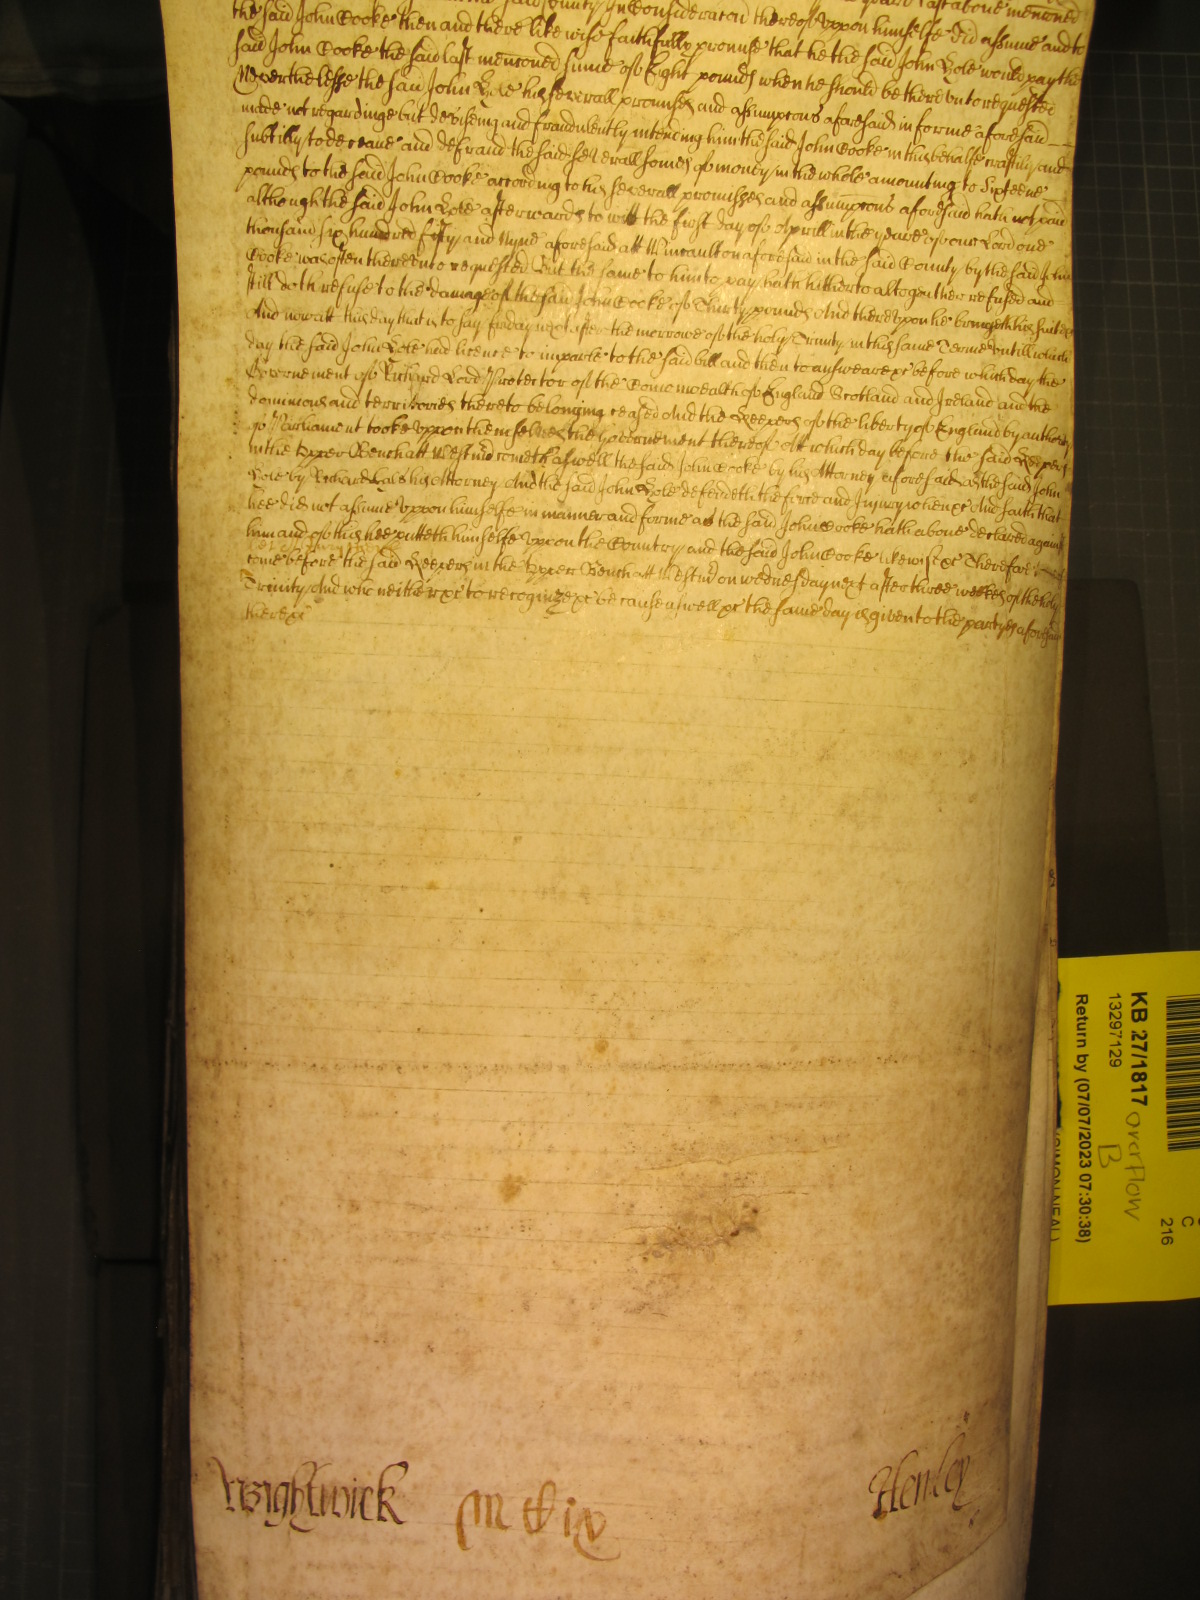 the said John Cooke then and there likewise faithfully promise that he the said John Cole would pay the
said John Cooke the said last mencõned summe of Eight pounds when he should be thereunto requested
Neverthelesse the said John Cole his severall promises and assumptions aforesaid in forme aforesaid
made not regardinge but deviseing and fraudulently intending him the said John Cooke in this behalfe craftily and
subtilly to deceave and defraud the said severall somes of money in the whole amounting to Sixteene
pounds to the said John Cooke according to his severall promisses and assumptions aforesaid hath not paid
although the said John Cole afterwards to witt the first day of Aprill in the yeare of our Lord one
thousand six hundred fifty and Nyne aforesaid att aforesaid in the said County by the said John
Cooke was often thereunto requested But the same to him to pay hath hitherto altogether refused and
still doth refuse to the damage of the said John Cooke of Thirty pounds And thereupon he bringeth his suite &c
And now att this day that is to say fryday next after the morrowe of the holy Trinity in this same Terme untill which
day the said John Cole had licence to imparle to the said bill and then to answeare &c before which day the
Governement of Richard Lord Protector of the Comonwealth of England Scotland and Ireland and the
dominions and territories thereto belonging ceased And the Keepers of the liberty of England by authority
of Parliament tooke uppon themselves the governement thereof Att which day before the said Keepers
in the Upper Bench att Westmr cometh aswell the said John Cooke by his Attorney aforesaid As the said John
Cole by Richard his Attorney And the said John Cole defendeth the force and Injury when &c And saith that
hee did not assume uppon himselfe in manner and forme as the said John Cooke hath above declared against
him and of this hee putteth himselfe uppon the Country and the said John Cooke likewise &c Therefore
come before the said Keepers in the Upper Bench att Westmr on wednesday next after three weekes of the holy
Trinity And who neither &c to recognize &c because aswell &c the same day is given to the partyes aforesaid
there &c
Wightwick
M th ix
Henley
KB 27/1817 overflow
B
13297129
Return by (07/07/2023 07:30:38)
C
216